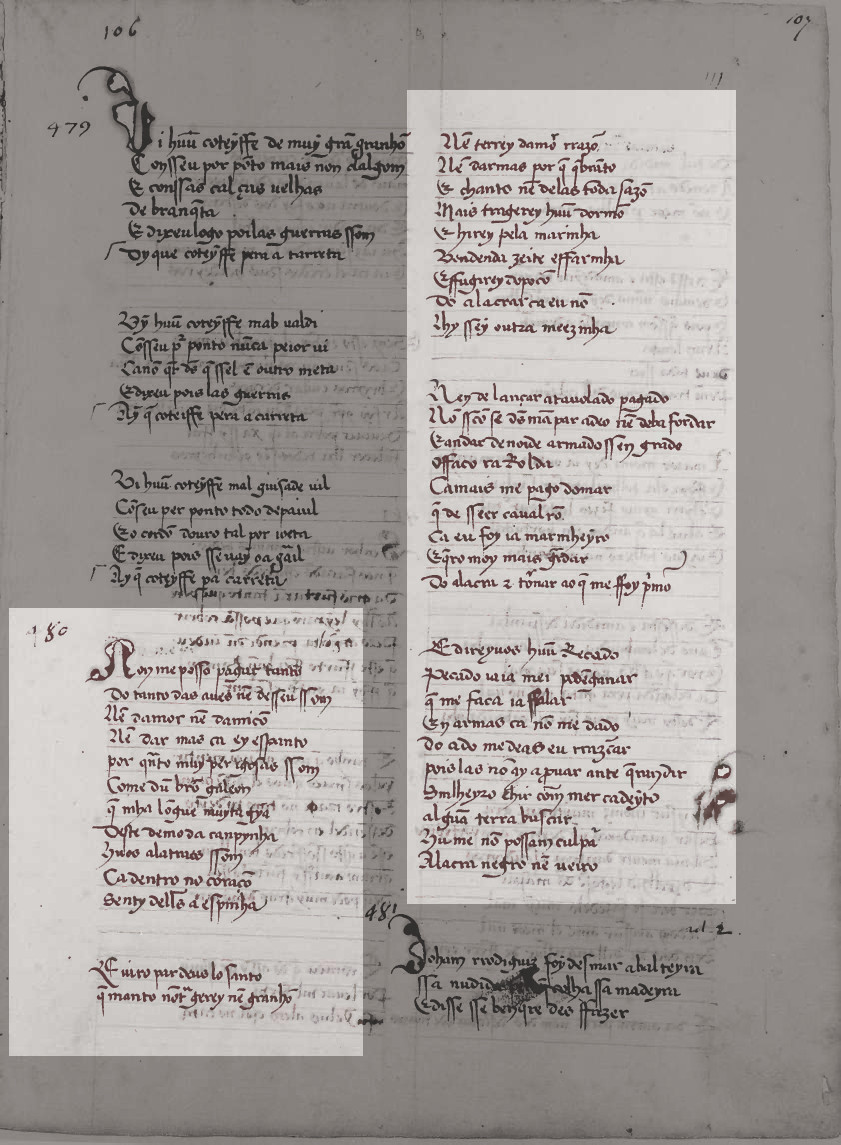 106
479
Vi huũ coteyffe de muỹ grã granhõ
Consseu por põto mais non dalgom
E conssas calças velhas
De branq̃ta
E dixeu logo poilas guerras ssom
Oy que coteyffe pera a carreta
Vỹ huũ coteyffe mab valdi
Cõsseu pr̃ ponto nũca peior vi
E dixeu pois las guerras
Ay q̃ coteiffe pera a carreta
Vi huũ coteyffe mal guisade vil
Cõseu per ponto todo de pavil
E o cordõ douro tal por joeta
E dixeu pois sse vay
Ay q̃ coteyffe pa carreta
480
Non me posso pagar tanto
Do canto das aves nẽ de sseu ssom
Nẽ damor nẽ damicõ
Nẽ dar mas ca ey espanto
por qñto muy perigosas ssom
Come dũ bõo galeon
q̃ mha longue muyta gỹa
Deste demo da canpynha
Hu os alacraes ssom
Ca dentro no coraçõ
Senty delles a espinha
E juro par deus lo santo
q̃ manto nõ tr̃agerey nẽ granhõ
107
Nẽ terrey damor rrazõ
Nẽ darmas por q̃ q̃branto
E chanto nẽ delas toda sazõ
Mais tragerey huũ dormõ
E hirey pela marinha
Vendenda zeite e ffarinha
E ffugirey do poçõ
Do alacrar ca eu nõ
Lhy ssey outra meezinha
Ney de lançar a tavolado pagado
Nõ ssõo se ds̃ m̃apar adeo nẽ de bafordar
E andar de noute armado ssen grado
O ffaço ra Rolda
Ca mais me pago do mar
q̃ de sseer cavalrõ
Ca eu foy ia marinheyro
E q̃ro moy mais g̃rdar
Do alacra z tornar ao q̃ me ffoy p̃mo
E direyvos huũ Recado
Pecado ia ia mei podẽganar
q̃ me faca ia ffalar
En armas ca nõ me dado
Do ado me de as eu rrazõar
pois las nõ ay a p̃uar ante q̃r andar
Sinlheyro E hir com̃ mercadeyro
algũa terra buscar
Hu me nõ possam culpar
Alacra negro nẽ veiro
481
vl 2.
Joham rrodiguiz foy desmar a balteyra
ssa midida colha ssa madeyra
E disse sse ben q̃redes ffazer